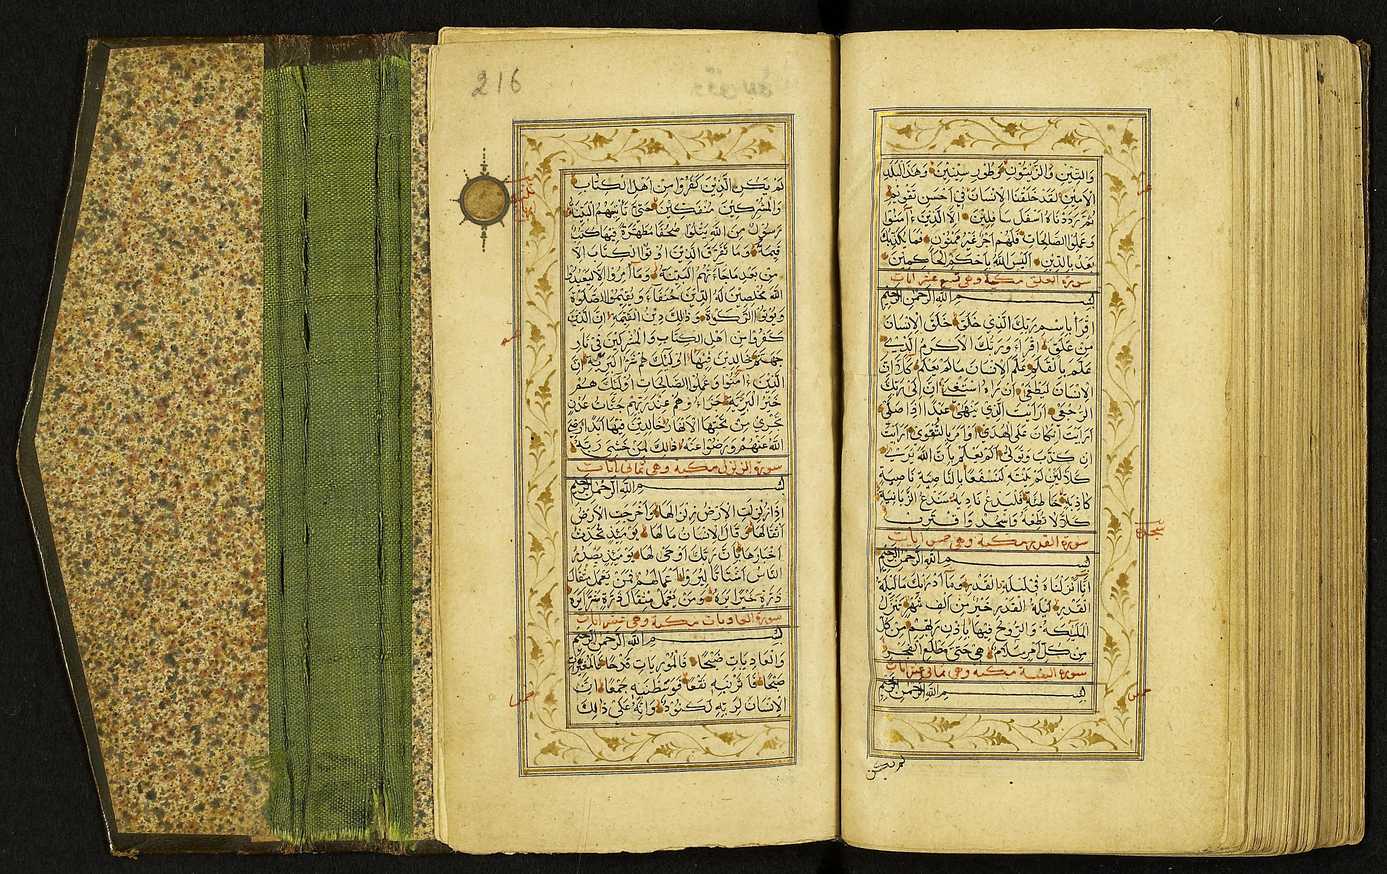 وَالتِّينِ وَالزَّيْتُونِ وَطُورِ سِينِينَ وَهَذَا الْبَلَدِ
الْأَمِينِ لَقَدْ خَلَقْنَا الْإِنْسَانَ فِي أَحْسَنِ تَقْوِيمٍ
ثُمَّ رَدَدْنَاهُ أَسْفَلَ سَافِلِينَ إِلَّا الَّذِينَ ءَامَنُوا
وَعَمِلُوا الصَّالِحَاتِ فَلَهُمْ أَجْرٌ غَيْرُ مَمْنُونٍ فَمَا يُكَذِّبُكَ
بَعْدُ بِالدِّينِ أَلَيْسَ اللَّهُ بِأَحْكَمِ الْحَاكِمِينَ
سورة العلق مكية وهي تسع عشر آيات
بسم الله الرحمن الرحيم
اقْرَأْ بِاسْمِ رَبِّكَ الَّذِي خَلَقَ خَلَقَ الْإِنْسَانَ
مِنْ عَلَقٍ اقْرَأْ وَرَبُّكَ الْأَكْرَمُ الَّذِي
عَلَّمَ بِالْقَلَمِ عَلَّمَ الْإِنْسَانَ مَا لَمْ يَعْلَمْ كَلَّا إِنَّ
الْإِنْسَانَ لَيَطْغَى أَنْ رَآهُ اسْتَغْنَى إِنَّ إِلَى رَبِّكَ
الرُّجْعَى أَرَأَيْتَ الَّذِي يَنْهَى عَبْدًا إِذَا صَلَّى
أَرَأَيْتَ إِنْ كَانَ عَلَى الْهُدَى أَوْ أَمَرَ بِالتَّقْوَى أَرَأَيْتَ
إِنْ كَذَّبَ وَتَوَلَّى أَلَمْ يَعْلَمْ بِأَنَّ اللَّهَ يَرَى
كَلَّا لَئِنْ لَمْ يَنْتَهِ لَنَسْفَعًا بِالنَّاصِيَةِ نَاصِيَةٍ
كَاذِبَةٍ خَاطِئَةٍ فَلْيَدْعُ نَادِيَهُ سَنَدْعُ الزَّبَانِيَةَ
كَلَّا لَا تُطِعْهُ وَاسْجُدْ وَاقْتَرِبْ
سورة القدر مكية وهي خمس آيات
بسم الله الرحمن الرحيم
إِنَّا أَنْزَلْنَاهُ فِي لَيْلَةِ الْقَدْرِ وَمَا أَدْرَاكَ مَا لَيْلَةُ
الْقَدْرِ لَيْلَةُ الْقَدْرِ خَيْرٌ مِنْ أَلْفِ شَهْرٍ تَنَزَّلُ
الْمَلَئِكَةُ وَالرُّوحُ فِيهَا بِإِذْنِ رَبِّهِمْ مِنْ كُلِّ
مِنْ كُلِّ أَمْرٍ سَلَامٌ هِيَ حَتَّى مَطْلَعِ الْفَجْرِ
سورة البينة مكية وهي ثماني آيات
بسم الله الرحمن الرحيم
لم يكن
216
لَمْ يَكُنِ الَّذِينَ كَفَرُوا مِنْ أَهْلِ الْكِتَابِ
وَالْمُشْرِكِينَ مُنْفَكِّينَ حَتَّى تَأْتِيَهُمُ الْبَيِّنَةُ
رَسُولٌ مِنَ اللَّهِ يَتْلُوا صُحُفًا مُطَهَّرَةً فِيهَا كُتُبٌ
قَيِّمَةٌ وَمَا تَفَرَّقَ الَّذِينَ أُوتُوا الْكِتَابَ إِلَّا
مِنْ بَعْدِ مَا جَاءَتْهُمُ الْبَيِّنَةُ وَمَا أُمِرُوا إِلَّا لِيَعْبُدُوا
اللَّهَ مُخْلِصِينَ لَهُ الدِّينَ حُنَفَاءَ وَيُقِيمُوا الصَّلَوةَ
وَيُؤْتُوا الزَّكَوةَ وَذَلِكَ دِينُ الْقَيِّمَةِ إِنَّ الَّذِينَ
كَفَرُوا مِنْ أَهْلِ الْكِتَابِ وَالْمُشْرِكِينَ فِي نَارِ
جَهَنَّمَ خَالِدِينَ فِيهَا أُولَئِكَ هُمْ شَرُّ الْبَرِيَّةِ إِنَّ
الَّذِينَ ءَامَنُوا وَعَمِلُوا الصَّالِحَاتِ أُولَئِكَ هُمْ
خَيْرُ الْبَرِيَّةِ جَزَاؤُهُمْ عِنْدَ رَبِّهِمْ جَنَّاتُ عَدْنٍ
تَجْرِي مِنْ تَحْتِهَا الْأَنْهَارُ خَالِدِينَ فِيهَا أَبَدًا رَضِيَ
اللَّهُ عَنْهُمْ وَرَضُوا عَنْهُ ذَلِكَ لِمَنْ خَشِيَ رَبَّهُ
سورة الزلزل مكية وهي ثماني آيات
بسم الله الرحمن الرحيم
إِذَا زُلْزِلَتِ الْأَرْضُ زِلْزَالَهَا وَأَخْرَجَتِ الْأَرْضُ
أَثْقَالَهَا وَقَالَ الْإِنْسَانُ مَا لَهَا يَوْمَئِذٍ تُحَدِّثُ
أَخْبَارَهَا بِأَنَّ رَبَّكَ أَوْحَى لَهَا يَوْمَئِذٍ يَصْدُرُ
النَّاسُ أَشْتَاتًا لِيُرَوْا أَعْمَالَهُمْ فَمَنْ يَعْمَلْ مِثْقَالَ
ذَرَّةٍ خَيْرًا يَرَهُ وَمَنْ يَعْمَلْ مِثْقَالَ ذَرَّةٍ شَرًّا يَرَهُ
سورة العاديات مكية وهي عشر آيات
بسم الله الرحمن الرحيم
وَالْعَادِيَاتِ ضَبْحًا فَالْمُورِيَاتِ قَدْحًا فَالْمُغِيرَاتِ
صُبْحًا فَأَثَرْنَ بِهِ نَقْعًا فَوَسَطْنَ بِهِ جَمْعًا إِنَّ
الْإِنْسَانَ لِرَبِّهِ لَكَنُودٌ وَإِنَّهُ عَلَى ذَلِكَ